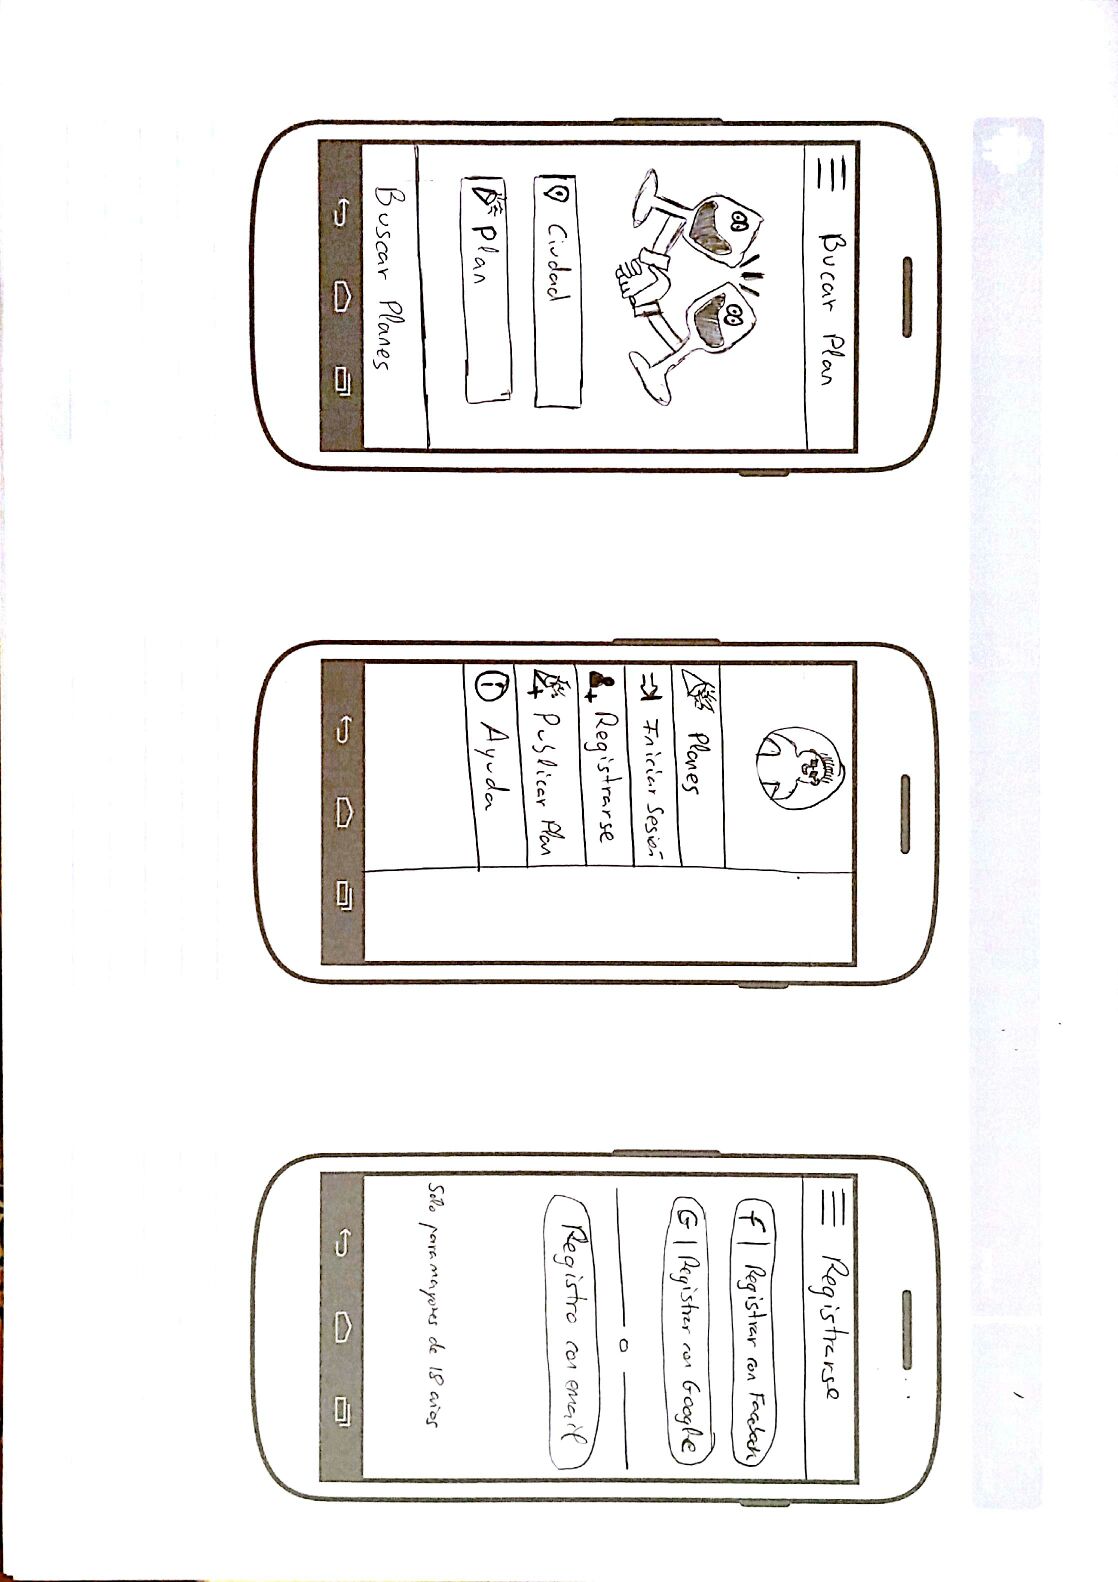 Bucar Plan
Ciudad
Plan
Buscar Planes
Planes
Iniciar Sesión
Registrarse
Publicar Plan
i
Ayuda
Registrarse
f | Registrar con Facebook
G | Registrar con Google
o
Registro con email
Sólo para mayores de 18 años